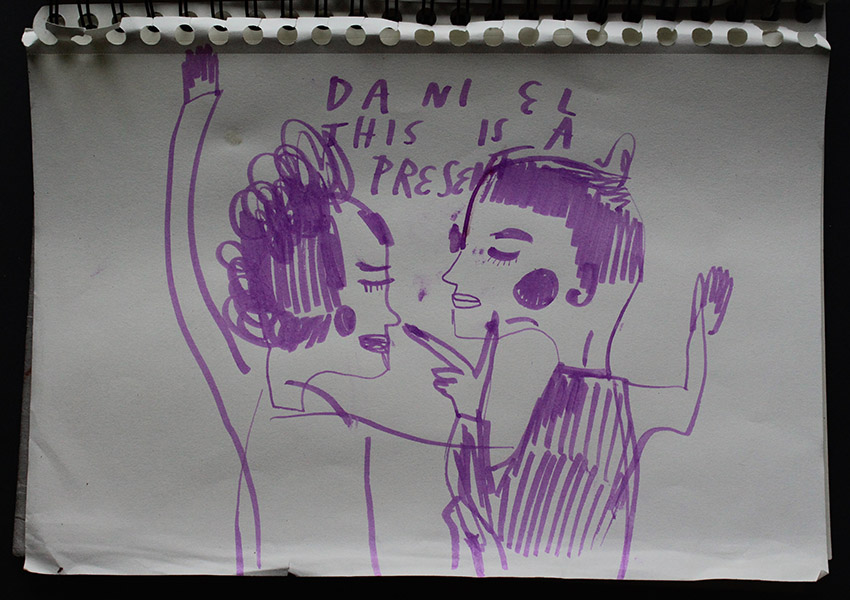 DANIEL
THIS IS A
PRESENT